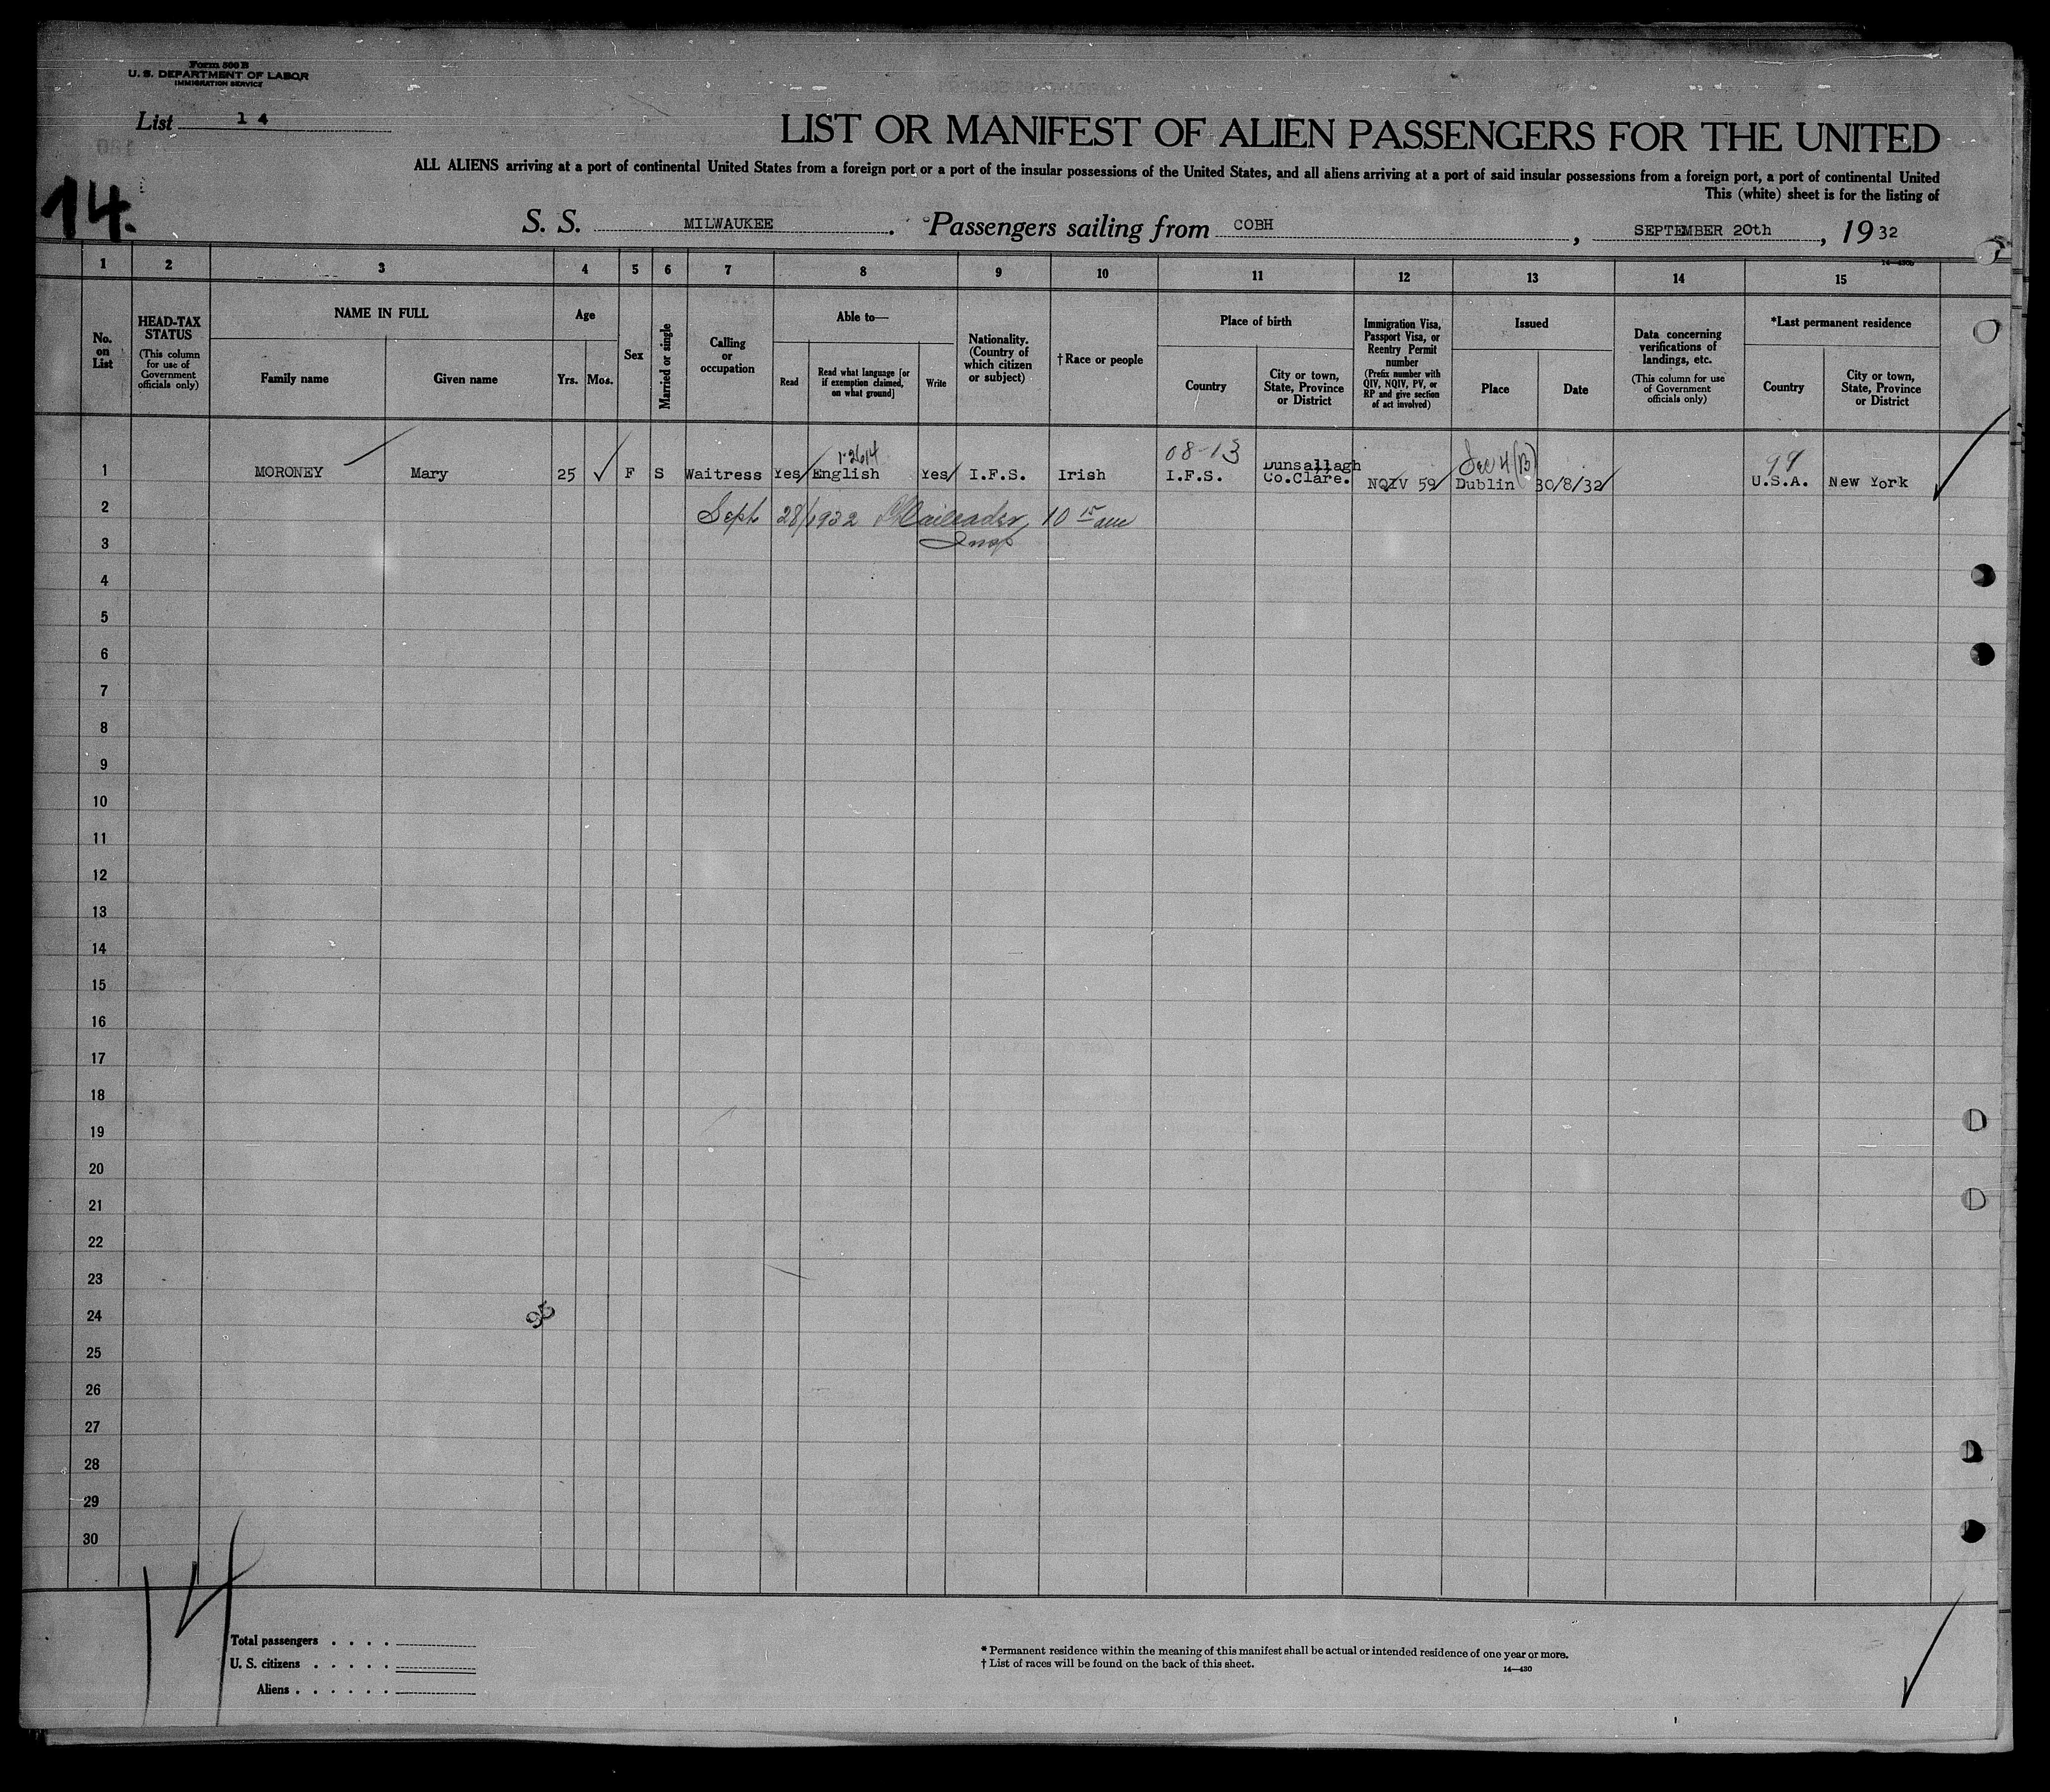 Form 500 B
U. S. DEPARTMENT OF LABOR
IMMIGRATION SERVICE
List 14
LIST OR MANIFEST OF ALIEN PASSENGERS FOR THE UNITED
ALL ALIENS arriving at a port of continental United States from a foreign port or a port of the insular possessions of the United States, and all aliens arriving at a port of said insular possessions from a foreign port, a port of continental United
This (white) sheet is for the listing of
14.
S. S. MILWAUKEE. Passengers sailing from COBH, SEPTEMBER 20th, 1932
1 2 3 4 5 6 7 8 9 10 11 12 13 14 15
No. on List
HEAD-TAX STATUS
(This column for use of Government officials only)
NAME IN FULL
Family name Given name
Age
Yrs. Mos.
Sex
Married or single
Calling or occupation
Able to—
Read
Read what language [or if exemption claimed, on what ground]
Write
Nationality. (Country of which citizen or subject)
†Race or people
Place of birth
Country
City or town, State, Province or District
Immigration Visa, Passport Visa, or Reentry Permit number
(Prefix number with QIV, NQIV, PV, or RP and give section of act involved)
Issued
Place Date
Data concerning verifications of landings, etc.
(This column for use of Government officials only)
*Last permanent residence
Country
City or town, State, Province or District
1-2614 08-13 99
1 MORONEY Mary 25 F S Waitress Yes English Yes I.F.S. Irish I.F.S. Dunsallagh Co.Clare. NQIV 59 Dublin 30/8/32 U.S.A. New York
2 Sept 28/1932 10 15 am
3 Insp
4
5
6
7
8
9
10
11
12
13
14
15
16
17
18
19
20
21
22
23
24 95
25
26
27
28
29
30
14
Total passengers . . . .
U. S. citizens . . . . .
Aliens . . . . . .
* Permanent residence within the meaning of this manifest shall be actual or intended residence of one year or more.
† List of races will be found on the back of this sheet.
14—430